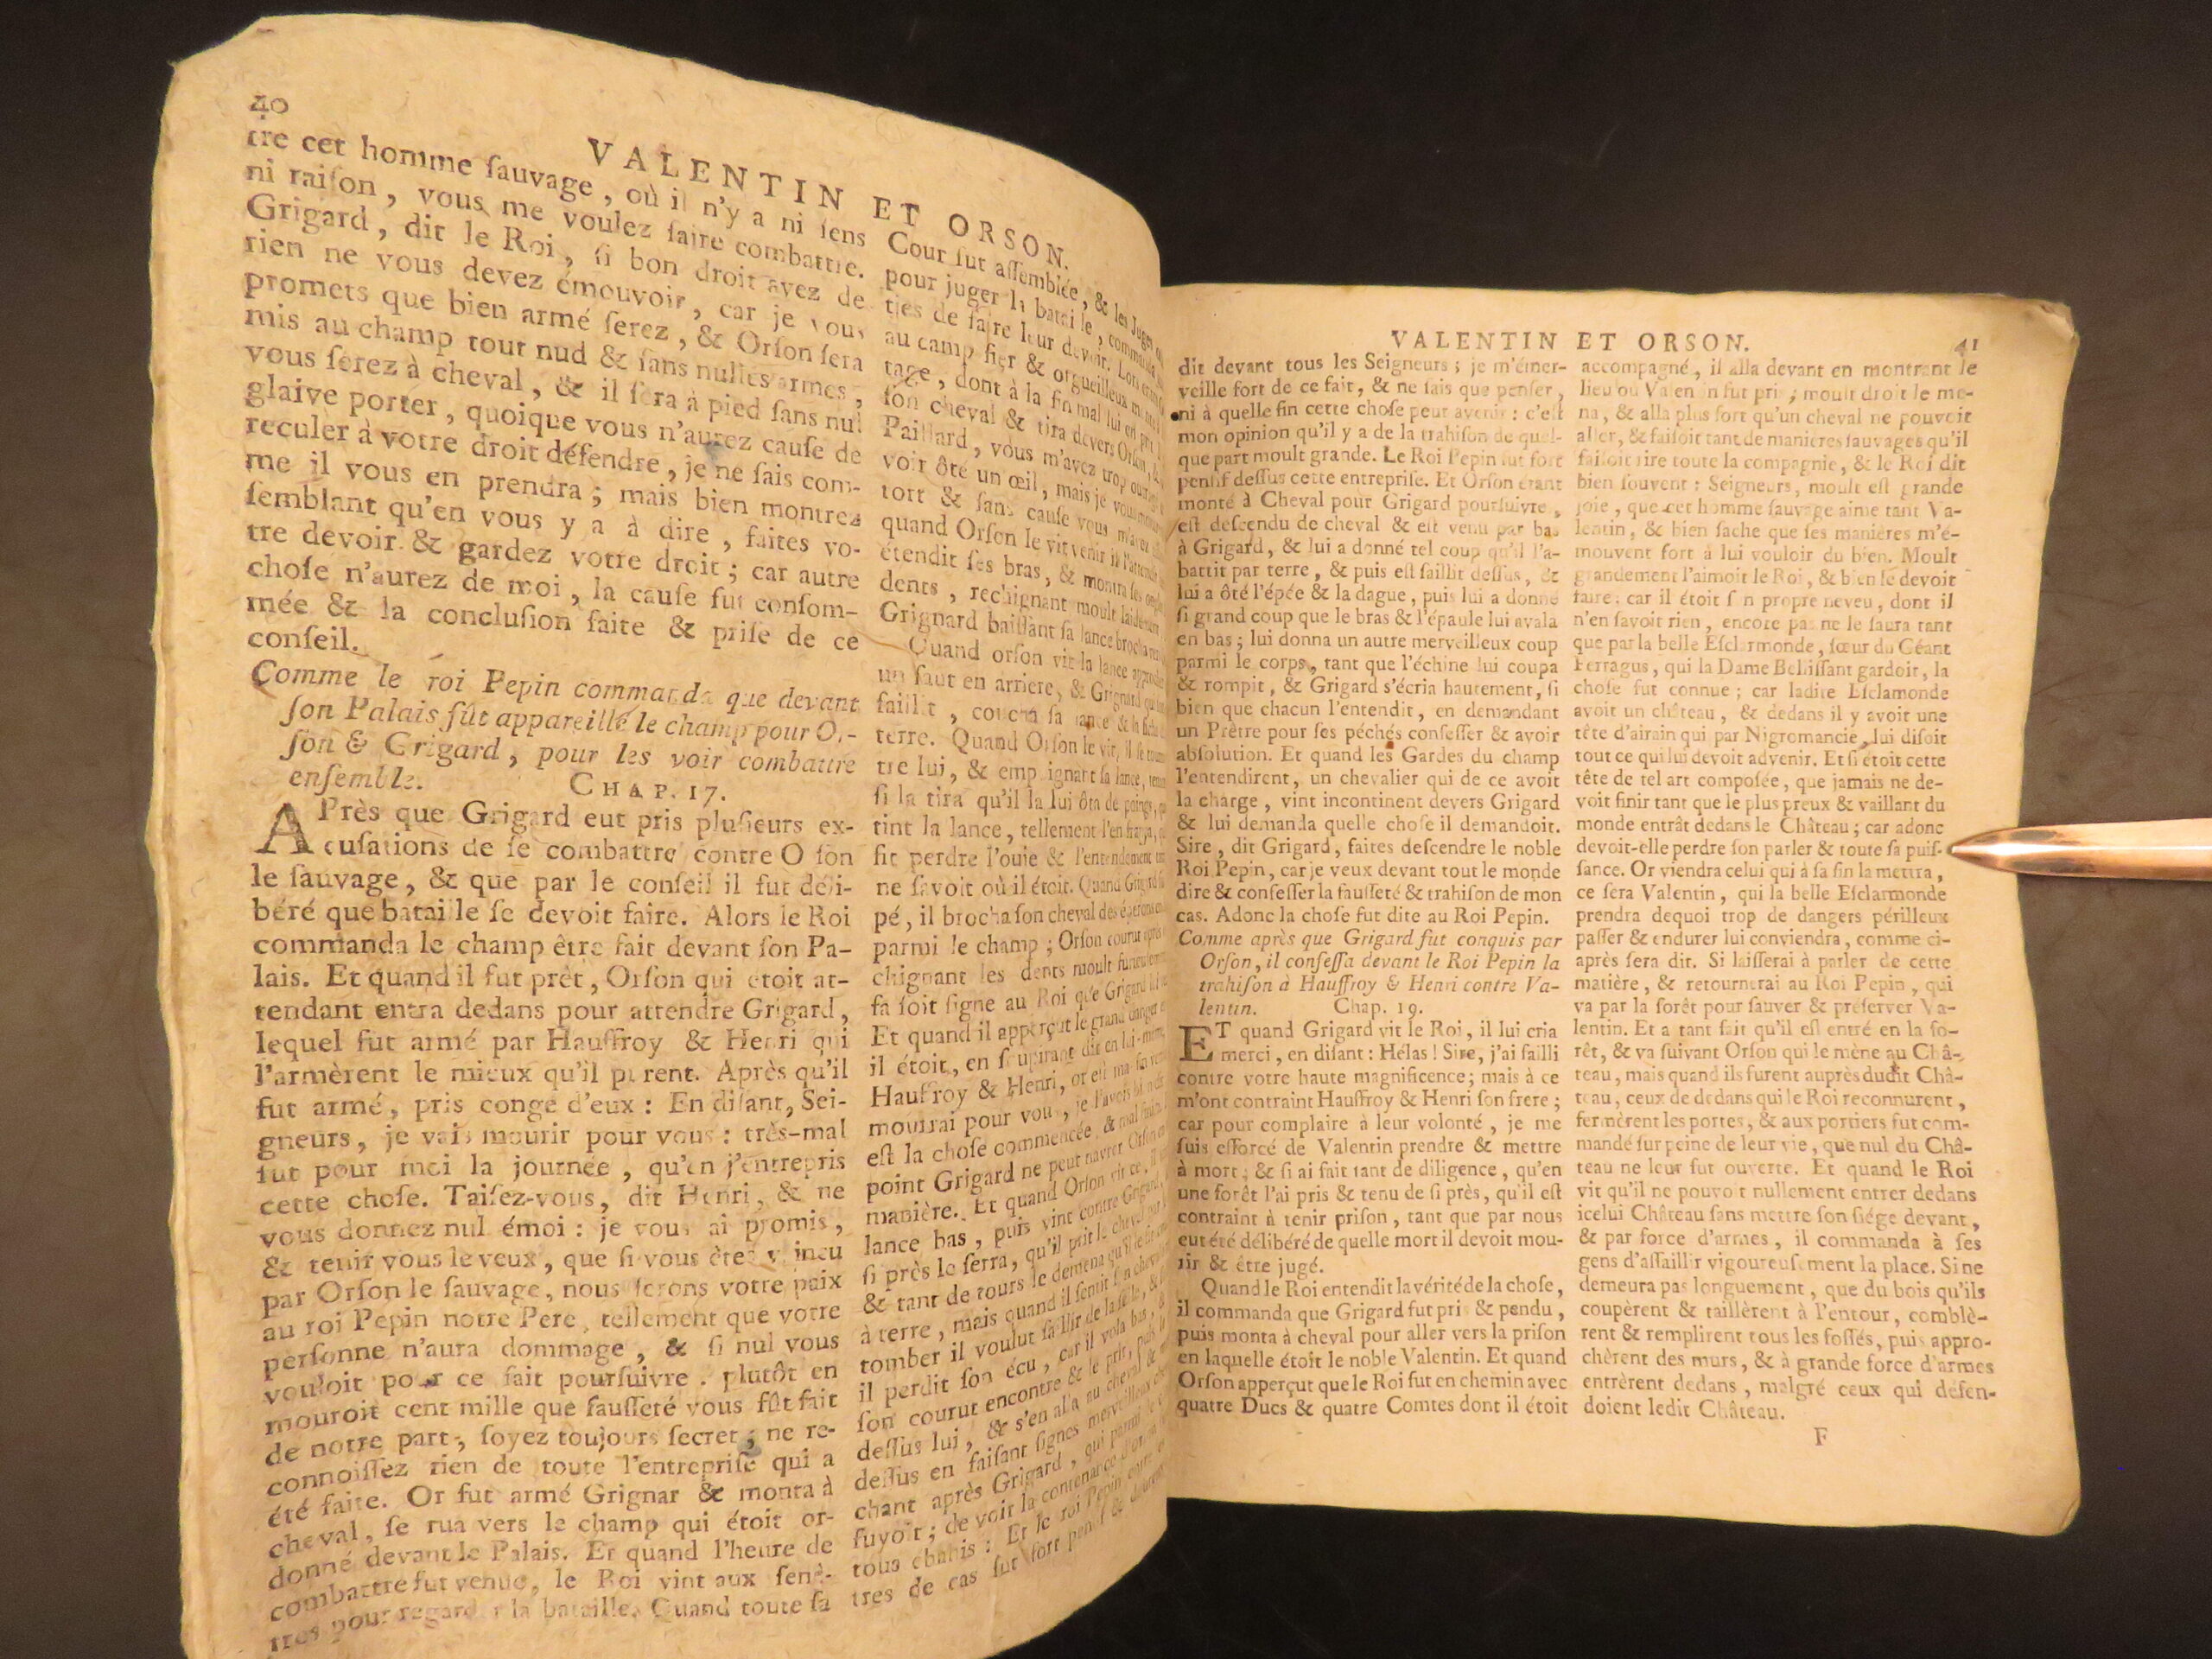 40
VALENTIN ET ORSON.
tre cet homme ſauvage, où il n'y a ni ſens
ni raiſon, vous me voulez faire combattre.
Grigard, dit le Roi, ſi bon droit avez de
rien ne vous devez émouvoir, car je vous
promets que bien armé ſerez, & Orſon ſera
mis au champ tout nud & ſans nulles armes,
vous ſerez à cheval, & il ſera à pied ſans nul
glaive porter, quoique vous n'aurez cauſe de
reculer à votre droit défendre, je ne ſais com-
me il vous en prendra; mais bien montrez
ſemblant qu'en vous y a à dire, faites vo-
tre devoir & gardez votre droit; car autre
choſe n'aurez de moi, la cauſe fut conſom-
mée & la concluſion faite & priſe de ce
conſeil.
Comme le roi Pepin commanda que devant
ſon Palais fût appareillé le champ pour Or-
ſon & Grigard, pour les voir combattre
enſemble. CHAP. 17.
APrès que Grigard eut pris pluſieurs ex-
cuſations de ſe combattre contre O ſon
le ſauvage, & que par le conſeil il fut déli-
béré que bataille ſe devoit faire. Alors le Roi
commanda le champ être fait devant ſon Pa-
lais. Et quand il fut prêt, Orſon qui étoit at-
tendant entra dedans pour attendre Grigard,
lequel fut armé par Hauffroy & Henri qui
l'armèrent le mieux qu'il purent. Après qu'il
fut armé, pris congé d'eux: En diſant, Sei-
gneurs, je vais mourir pour vous: très-mal
fut pour moi la journée, qu'en j'entrepris
cette choſe. Taiſez-vous, dit Henri, & ne
vous donnez nul émoi: je vous ai promis,
& tenir vous le veux, que ſi vous êtes vaincu
par Orſon le ſauvage, nous ferons votre paix
au roi Pepin notre Pere, tellement que votre
perſonne n'aura dommage, & ſi nul vous
vouloit pour ce fait pourſuivre. plutôt en
mouroit cent mille que fauſſeté vous fût fait
de notre part, ſoyez toujours ſecret; ne re-
connoiſſez rien de toute l'entrepriſe qui a
été faite. Or fut armé Grignar & monta à
cheval, ſe rua vers le champ qui étoit or-
donné devant le Palais. Et quand l'heure de
combattre fut venue, le Roi vint aux fenê-
tres pour regarder la bataille. Quand toute ſa
Cour fut aſſemblée, & les Juges
pour juger la bataille, commanda
ties de faire leur devoir. Lors
au camp fier & orgueilleux
tage, dont à la fin mal lui en prit
ſon cheval & tira devers Orſon,
Paillard, vous m'avez trop
voir ôté un œil, mais je vous
tort & ſans cauſe vous m'avez
quand Orſon le vit venir il
étendit ſes bras, & montra ſes
dents, rechignant moult laidement
Grignard baiſſant ſa lance brocha
Quand orſon vit la lance
un ſaut en arriere, & Grignard
faillit, coucha ſa lance & la ficha
terre. Quand Orſon le vit, il ſe
tre lui, & empoignant ſa lance,
ſi la tira qu'il la lui ôta de poings,
tint la lance, tellement l'en frappa,
fit perdre l'ouie & l'entendement
ne ſavoit où il étoit. Quand
pé, il brocha ſon cheval des éperons
parmi le champ; Orſon courut après
chignant les dents moult
faiſoit ſigne au Roi que Grigard
Et quand il apperçut le grand danger
il étoit, en ſoupirant dit en lui-même
Hauffroy & Henri, or eſt ma
mourrai pour vous, je l'avois
eſt la choſe commencée, & mal
point Grigard ne peut navrer Orſon
manière. Et quand Orſon vit ce,
lance bas, puis vint contre Grigard,
ſi près le ſerra, qu'il prit le cheval
& tant de tours le demena qu'il le fit
à terre, mais quand il ſentit ſon cheval
tomber il voulut ſaillir de la ſelle, &
il perdit ſon écu, car il vola bas,
ſon courut encontre & le prit, puis
deſſus lui, & s'en alla au cheval &
deſſus en faiſant ſignes merveilleux
chant après Grigard, qui parmi
fuyoit; de voir la contenance
tous ébahis: Et le roi Pepin entre
tres de cas fut fort penſif &
VALENTIN ET ORSON.
41
dit devant tous les Seigneurs; je m'émer-
veille fort de ce fait, & ne ſais que penſer,
ni à quelle fin cette choſe peut avenir: c'eſt
mon opinion qu'il y a de la trahiſon de quel-
que part moult grande. Le Roi Pepin fut fort
penſif deſſus cette entrepriſe. Et Orſon étant
monté à Cheval pour Grigard pourſuivre,
eſt deſcendu de cheval & eſt venu par bas
à Grigard, & lui a donné tel coup qu'il l'a-
battit par terre, & puis eſt ſaillit deſſus, &
lui a ôté l'épée & la dague, puis lui a donné
ſi grand coup que le bras & l'épaule lui avala
en bas; lui donna un autre merveilleux coup
parmi le corps, tant que l'échine lui coupa
& rompit, & Grigard s'écria hautement, ſi
bien que chacun l'entendit, en demandant
un Prêtre pour ſes péchés confeſſer & avoir
abſolution. Et quand les Gardes du champ
l'entendirent, un chevalier qui de ce avoit
la charge, vint incontinent devers Grigard
& lui demanda quelle choſe il demandoit.
Sire, dit Grigard, faites deſcendre le noble
Roi Pepin, car je veux devant tout le monde
dire & confeſſer la fauſſeté & trahiſon de mon
cas. Adonc la choſe fut dite au Roi Pepin.
Comme après que Grigard fut conquis par
Orſon, il confeſſa devant le Roi Pepin la
trahiſon à Hauffroy & Henri contre Va-
lentin. Chap. 19.
ET quand Grigard vit le Roi, il lui cria
merci, en diſant: Hélas! Sire, j'ai failli
contre votre haute magnificence; mais à ce
m'ont contraint Hauffroy & Henri ſon frere;
car pour complaire à leur volonté, je me
ſuis efforcé de Valentin prendre & mettre
à mort; & ſi ai fait tant de diligence, qu'en
une forêt l'ai pris & tenu de ſi près, qu'il eſt
contraint à tenir priſon, tant que par nous
eut été délibéré de quelle mort il devoit mou-
rir & être jugé.
Quand le Roi entendit la vérité de la choſe,
il commanda que Grigard fut pris & pendu,
puis monta à cheval pour aller vers la priſon
en laquelle étoit le noble Valentin. Et quand
Orſon apperçut que le Roi fut en chemin avec
quatre Ducs & quatre Comtes dont il étoit
accompagné, il alla devant en montrant le
lieu où Valentin fut pris; moult droit le me-
na, & alla plus fort qu'un cheval ne pouvoit
aller, & faiſoit tant de manières ſauvages qu'il
faiſoit rire toute la compagnie, & le Roi dit
bien ſouvent: Seigneurs, moult eſt grande
joie, que cet homme ſauvage aime tant Va-
lentin, & bien ſache que ſes manières m'é-
mouvent fort à lui vouloir du bien. Moult
grandement l'aimoit le Roi, & bien le devoit
faire; car il étoit ſon propre neveu, dont il
n'en ſavoit rien, encore pas ne le ſaura tant
que par la belle Eſclarmonde, ſœur du Géant
Ferragus, qui la Dame Belliſſant gardoit, la
choſe fut connue; car ladite Eſclamonde
avoit un château, & dedans il y avoit une
tête d'airain qui par Nigromancie, lui diſoit
tout ce qui lui devoit advenir. Et ſi étoit cette
tête de tel art compoſée, que jamais ne de-
voit finir tant que le plus preux & vaillant du
monde entrât dedans le Château; car adonc
devoit-elle perdre ſon parler & toute ſa puiſ-
ſance. Or viendra celui qui à ſa fin la mettra,
ce ſera Valentin, qui la belle Eſclarmonde
prendra dequoi trop de dangers périlleux
paſſer & endurer lui conviendra, comme ci-
après ſera dit. Si laiſſerai à parler de cette
matière, & retournerai au Roi Pepin, qui
va par la forêt pour ſauver & préſerver Va-
lentin. Et a tant fait qu'il eſt entré en la fo-
rêt, & va ſuivant Orſon qui le mène au Châ-
teau, mais quand ils furent auprès dudit Châ-
teau, ceux de dedans qui le Roi reconnurent,
fermèrent les portes, & aux portiers fut com-
mandé ſur peine de leur vie, que nul du Châ-
teau ne leur fut ouverte. Et quand le Roi
vit qu'il ne pouvoit nullement entrer dedans
icelui Château ſans mettre ſon ſiége devant,
& par force d'armes, il commanda à ſes
gens d'aſſaillir vigoureuſement la place. Si ne
demeura pas longuement, que du bois qu'ils
coupèrent & taillèrent à l'entour, comblè-
rent & remplirent tous les foſſés, puis appro-
chèrent des murs, & à grande force d'armes
entrèrent dedans, malgré ceux qui défen-
doient ledit Château.
F